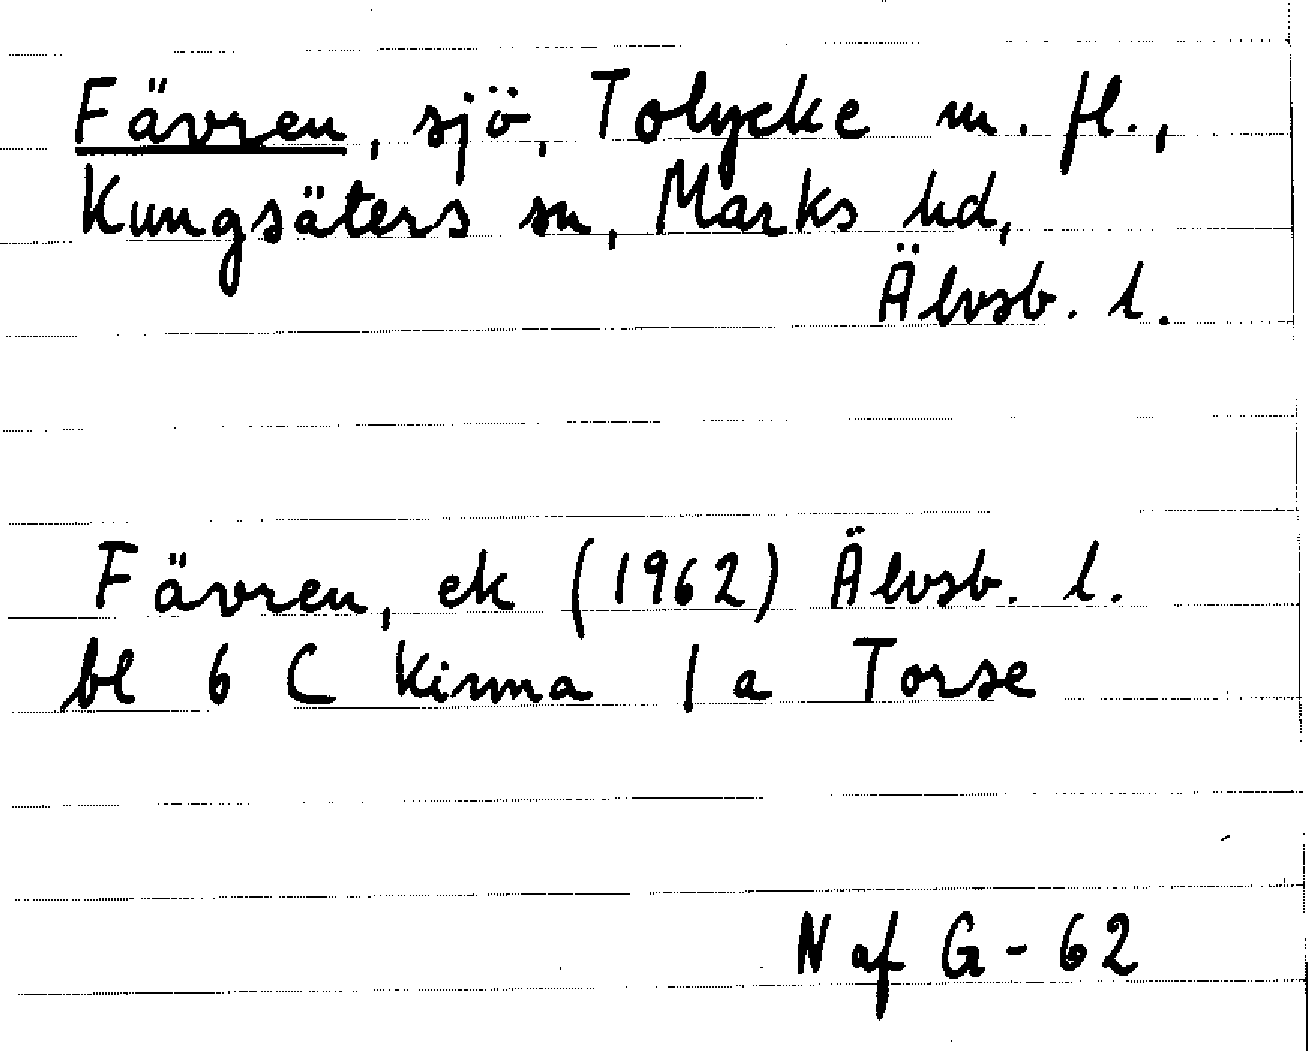 Fävren, sjö, Tolycke m. fl.,
Kungsäters sn, Marks hd,
Älvsb. l.
Fävren, ek (1962) Älvsb. l.
bl 6 C Kinna 1 a Torse
N af G - 62